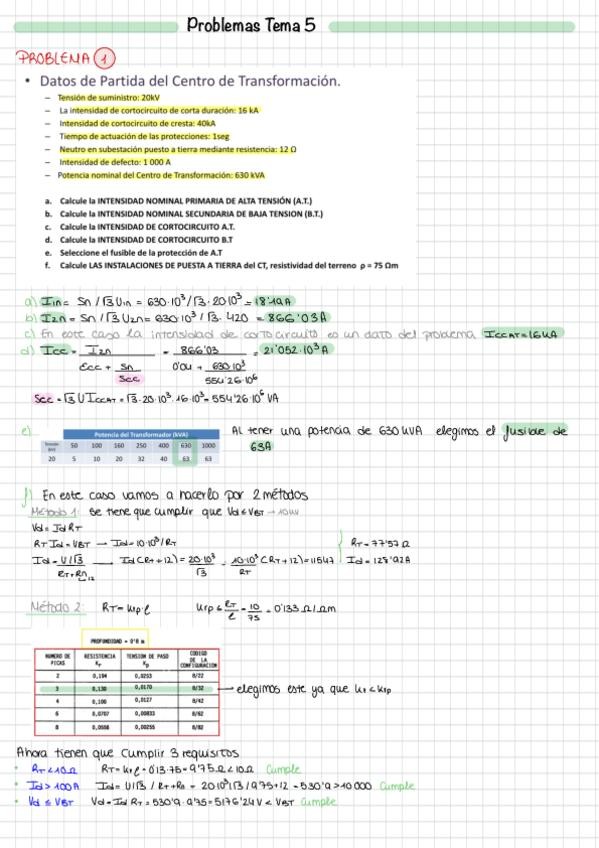 Problemas Tema 5
PROBLEMA 1
• Datos de Partida del Centro de Transformación.
– Tensión de suministro: 20kV
– La intensidad de cortocircuito de corta duración: 16 kA
– Intensidad de cortocircuito de cresta: 40kA
– Tiempo de actuación de las protecciones: 1seg
– Neutro en subestación puesto a tierra mediante resistencia: 12 Ω
– Intensidad de defecto: 1 000 A
– Potencia nominal del Centro de Transformación: 630 kVA
a. Calcule la INTENSIDAD NOMINAL PRIMARIA DE ALTA TENSIÓN (A.T.)
b. Calcule la INTENSIDAD NOMINAL SECUNDARIA DE BAJA TENSION (B.T.)
c. Calcule la INTENSIDAD DE CORTOCIRCUITO A.T.
d. Calcule la INTENSIDAD DE CORTOCIRCUITO B.T
e. Seleccione el fusible de la protección de A.T
f. Calcule LAS INSTALACIONES DE PUESTA A TIERRA del CT, resistividad del terreno ρ = 75 Ωm
a) I1n = Sn / √3 U1n = 630·10³ / √3 · 20·10³ = 18'19 A
b) I2n = Sn / √3 U2n = 630·10³ / √3 · 420 = 866'03 A
c) En este caso la intensidad de cortocircuito es un dato del problema ICCAT = 16 kA
d) Icc = I2n / (εcc + Sn/Scc) = 866'03 / (0'04 + 630·10³/554'26·10⁶) = 21'052·10³ A
Scc = √3 U ICCAT = √3 · 20·10³ · 16·10³ = 554'26·10⁶ VA
e) Al tener una potencia de 630 kVA elegimos el fusible de
63A
Potencia del Transformador (kVA)
Tensión (kV) 50 100 160 250 400 630 1000
20 5 10 20 32 40 63 63
f) En este caso vamos a hacerlo por 2 métodos
Método 1: Se tiene que cumplir que Vd ≤ VBT → 10kV
Vd = Id RT
RT Id = VBT → Id = 10·10³/RT
Id = U/√3 / RT+Rn 12 → Id (RT + 12) = 20·10³/√3 10·10³/RT (RT + 12) = 11547
RT = 77'57 Ω
Id = 128'92A
Método 2: RT = Krρ · ρ Krρ ≤ RT/ρ = 10/75 = 0'133 Ω/Ωm
PROFUNDIDAD = 0'8 m
NUMERO DE PICAS RESISTENCIA Kr TENSION DE PASO Kp CODIGO DE LA CONFIGURACION
2 0,194 0,0253 8/22
3 0,130 0,0170 8/32
4 0,100 0,0127 8/42
6 0,0707 0,00833 8/62
8 0,0556 0,00255 8/82
→ elegimos este ya que kr < krρ
Ahora tienen que cumplir 3 requisitos
• RT < 10Ω RT = Kr · ρ = 0'13 · 75 = 9'75 Ω < 10 Ω Cumple
• Id > 100A Id = U/√3 / RT + Rn = 20·10³/√3 / 9'75+12 = 530'9 > 10000 Cumple
• Vd ≤ VBT Vd = Id RT = 530'9 · 9'75 = 5176'24 V < VBT Cumple